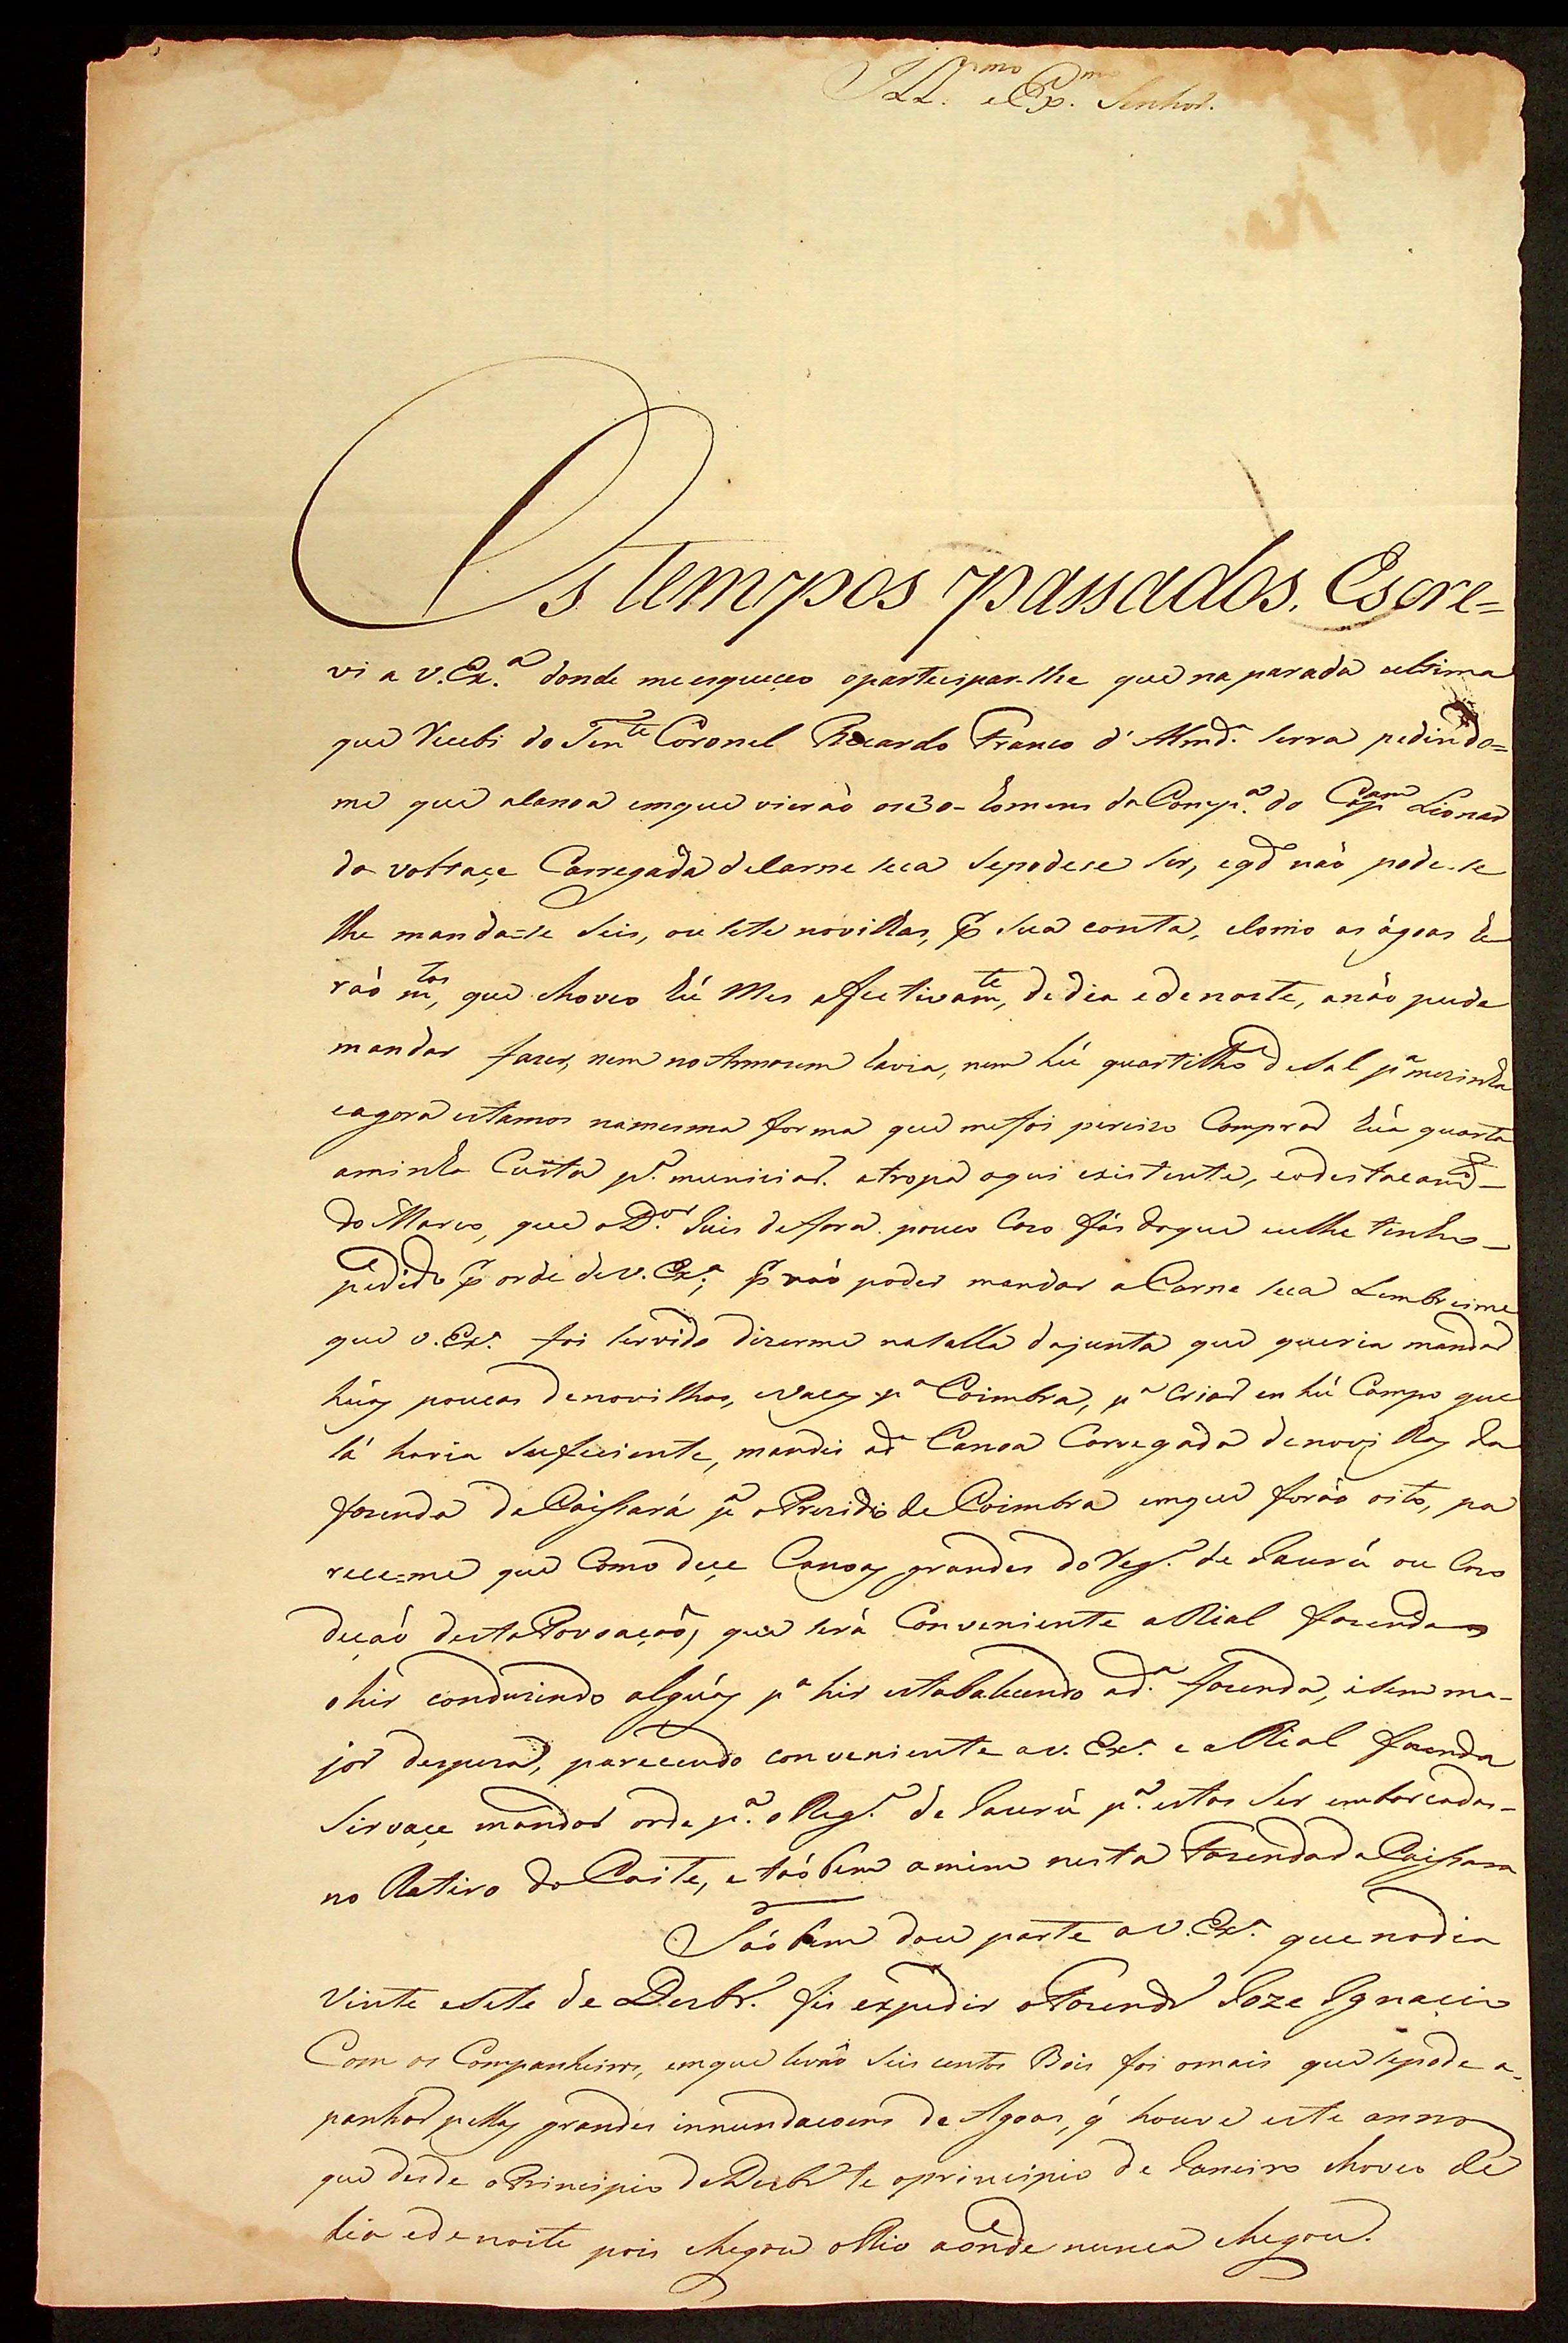 Ill.mo e Ex.mo Senhor.
Os tempos passados. Escre=
vi a V.Ex.ª donde me esqueceo o partecipar-lhe que na parada ultima
que Recebi do Ten.te Coronel Recardo Franco d'Almd.ª Serra pedindo=
me que a Canoa em que vierão os 30- homens da Comp.ª do Cap.am Leonar
do voltaçe Carregada de Carne seca se podese ser, e q.do não pode-se
lhe manda=se seis, ou sete novilhas, p sua conta, e Como as ágoas he
rão m.tas, que choveo hú Mes effectivam.te, de dia e de noite, a não pude
mandar fazer, nem no Armazem havia, nem hú quartilho de Sal p.ª mezinha
e agora estamos na mesma forma que me foi perciso Comprar húa quarta
a minha Custa p.ª municiar. a tropa aqui existente, e o destacam.to
do Marco, que o D.or Juis de fora pouco Cazo fás do que eu lhe tenho
pedido p orde de V.Ex.ª, p não poder mandar a Carne seca Lembreime
que V.Ex.ª foi Servido dizerme na salla da junta que queria mandar
húas poucas de novilhas, e Vacas p.ª Coimbra, p.ª Criar en hú Campo que
lá havia suficiente, mandei a d.ª Canoa Carregada de novilhas da
fazenda da Caissará p.ª o Prezidio de Coimbra em que forão oito, pa
rece=me que Como deçe Canoas grandes do Reg.º de Jaurú ou Cazo
deção desta Povoação, que será Conveniente a Rial fazenda
o hir conduzindo algúas p.ª hir estabalecendo a d.ª fazenda, i sem ma-
jor despeza, parecendo conveniente a V.Ex.ª e a Rial fazenda
Sirvaçe mandar orde p.ª o Reg.º de Jaurú p.ª estas ser embarcadas-
no Retiro do Caite, e tãobem a mim nesta Fazenda da Caissara
Tãobem dou parte a V.Ex.ª que no dia
Vinte e sete de Dezbr.º fis expedir o Fazendr.º Joze Ignacio
Com os Companheiros, em que levão seis centos Bois foi o mais que se pode a-
panhar pellas grandes innundacoens de Agoas, q̃ houve este anno
que desde o Principio de Dezbr.º te o principio de Janeiro choveo de
dia e de noite pois chegou o Rio aonde nunca chegou.